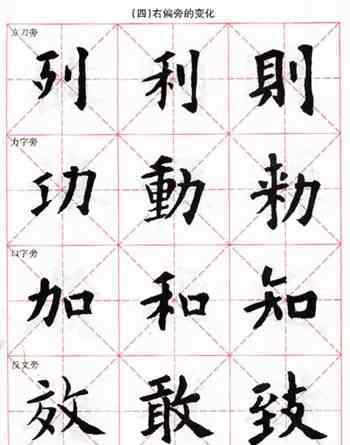 (四)右偏旁的变化
立刀旁
列利則
力字旁
功動勑
口字旁
加和知
反文旁
效敢致